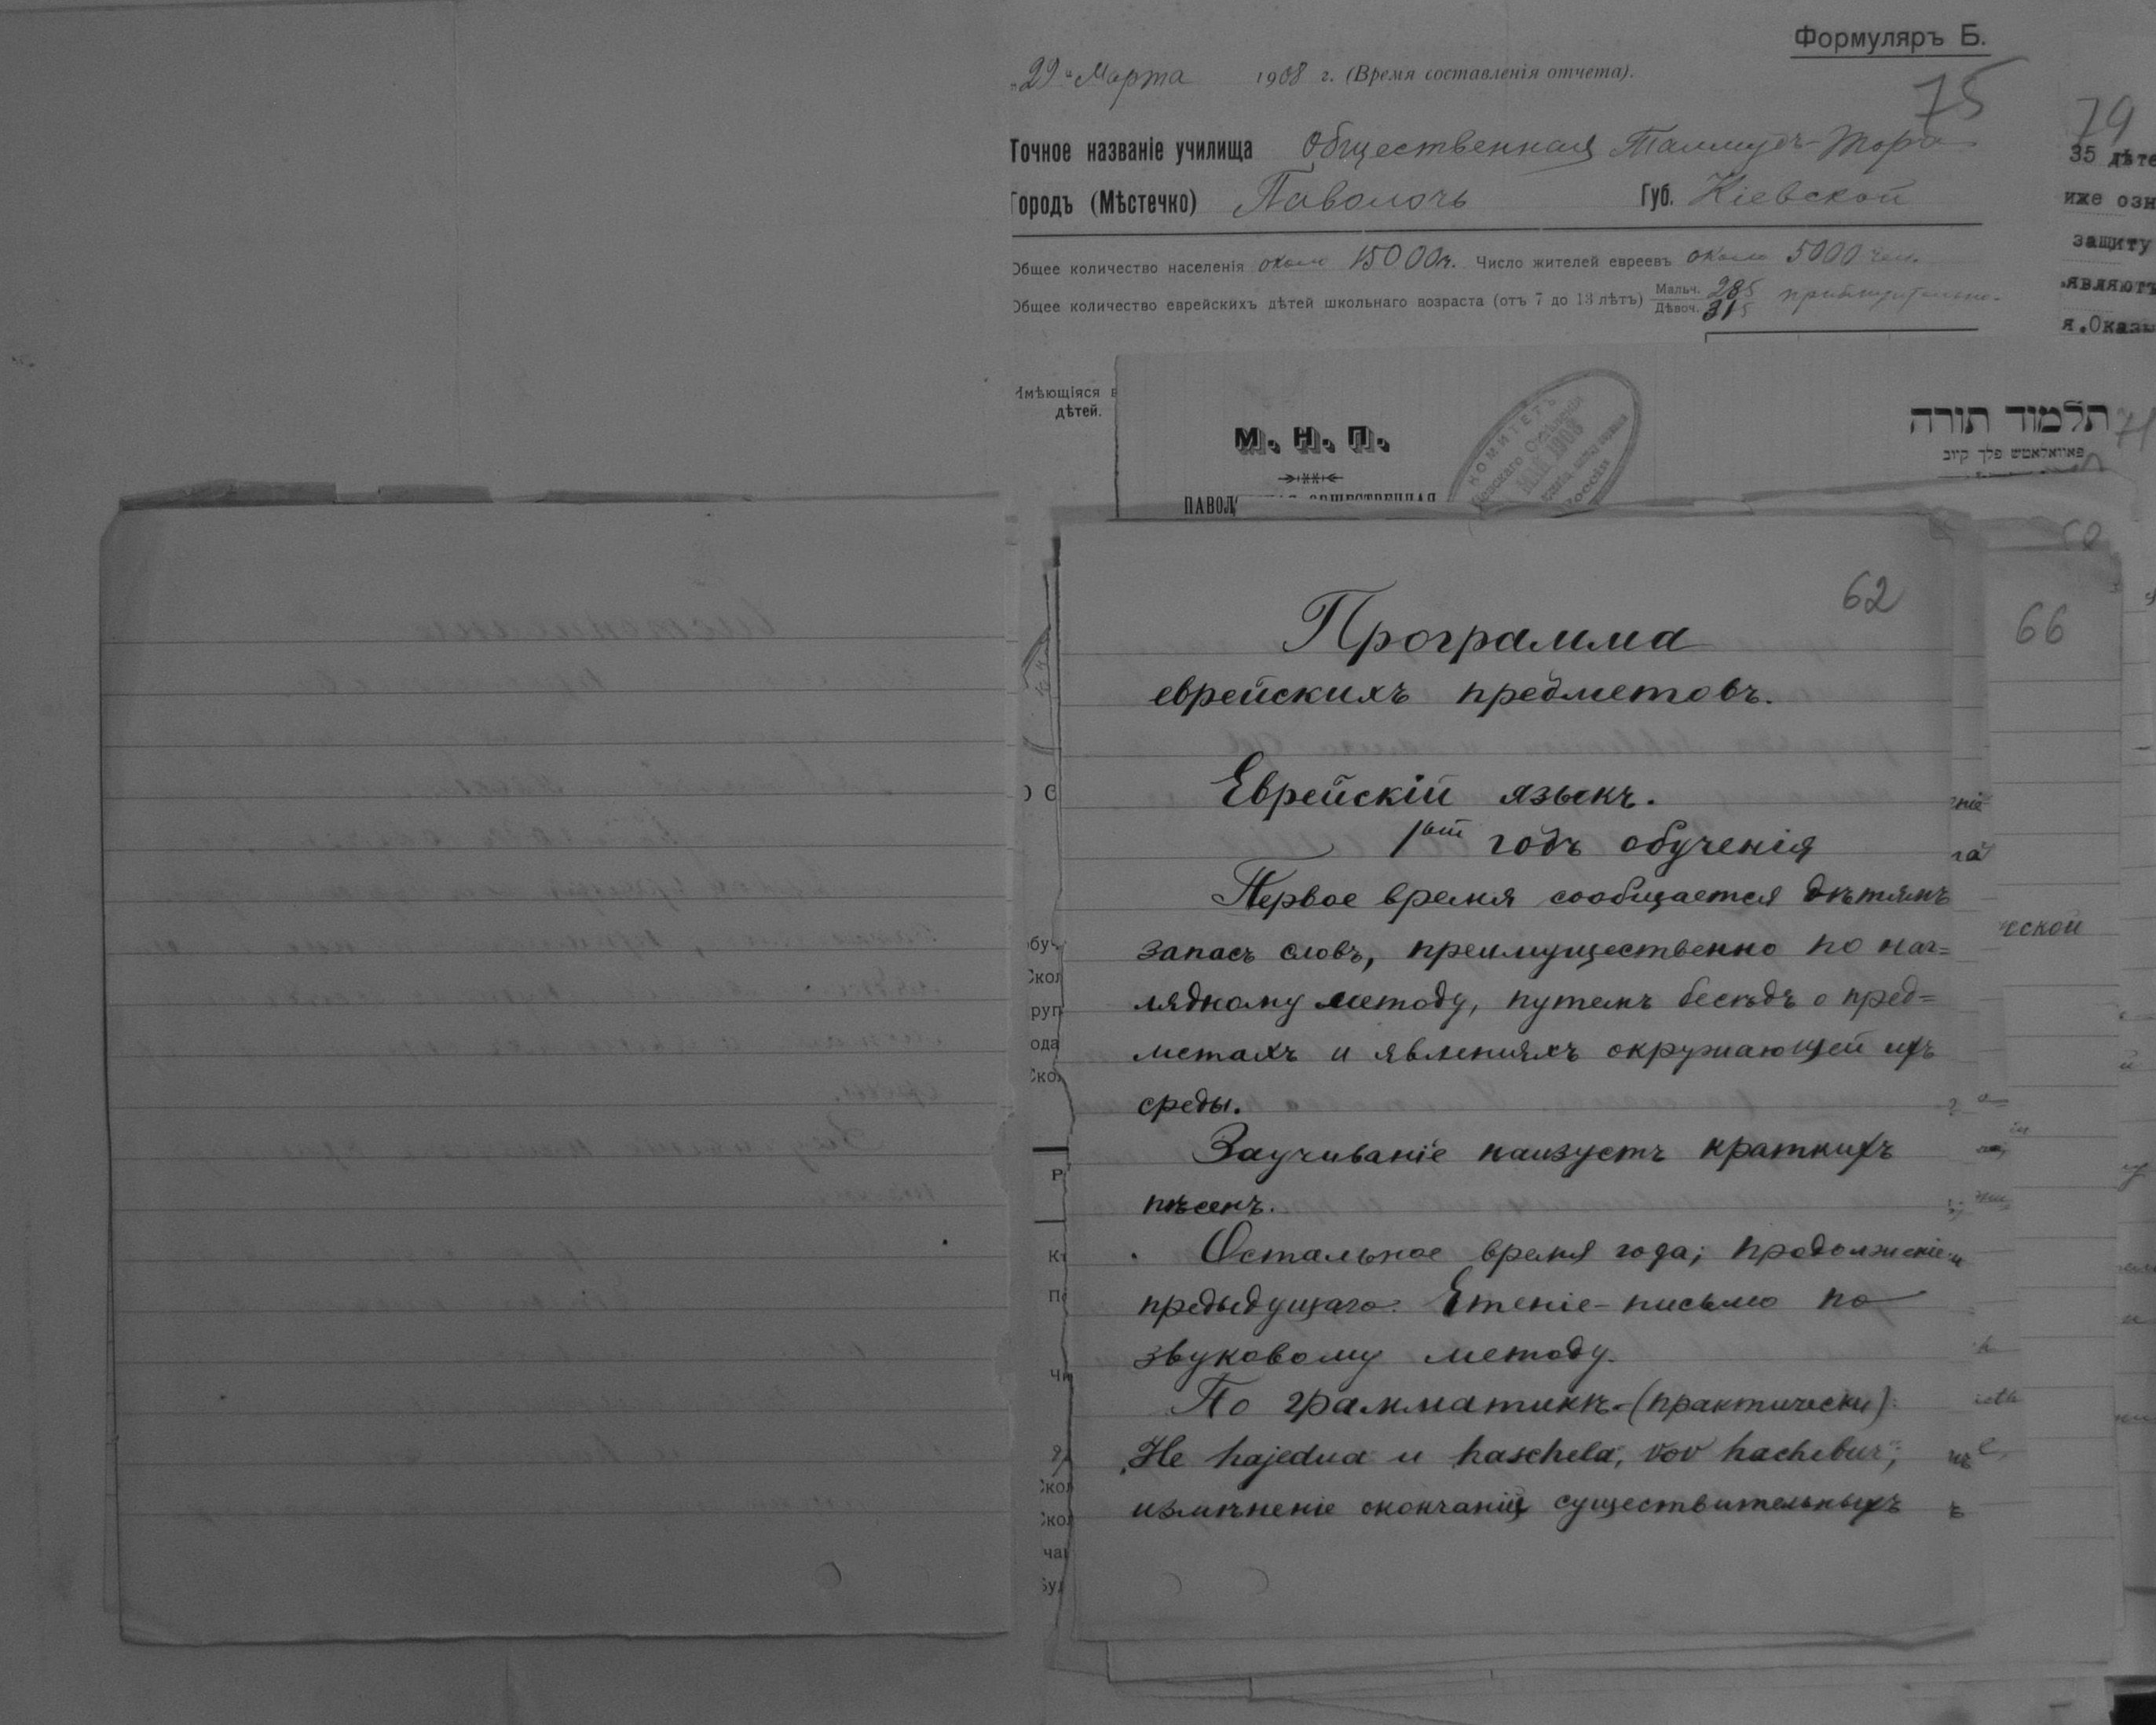 Формуляръ Б.
„29“ Марта 1908 г. (Время составленія отчета).
75
79
Точное названіе училища Общественная Талмудъ-Тора
35 дѣте
Городъ (Мѣстечко) Паволочь Губ. Кіевской
иже озн
защиту
Общее количество населенія около 15000 ч. Число жителей евреевъ около 5000 чел.
являютъ
Общее количество еврейскихъ дѣтей школьнаго возраста (отъ 7 до 13 лѣтъ) Мальч. 285 Дѣвоч. 315 приблизительно.
я.Оказы
Имѣющіяся в
дѣтей.
М. Н. П.
КОМИТЕТЪ
МАЙ 1908
Россіи
תלמוד תורה
71
פאוואלאטש פלך קיוב
ПАВОЛ ОБЩЕСТВЕННАЯ
62
66
Программа
еврейскихъ предметовъ.
Еврейскій языкъ.
1ый годъ обученія
Первое время сообщается дѣтямъ
запасъ словъ, преимущественно по наг=
лядному методу, путемъ бесѣдъ о пред=
метахъ и явленіяхъ окружающей ихъ
среды.
Заучиваніе наизусть краткихъ
пѣсенъ.
Остальное время года; продолженіе
предыдущаго. Чтеніе-письмо по
звуковому методу.
По грамматикѣ-(практически):
„He hajedua и haschela, vov hachibur,
измѣненіе окончаній существительныхъ
ческой